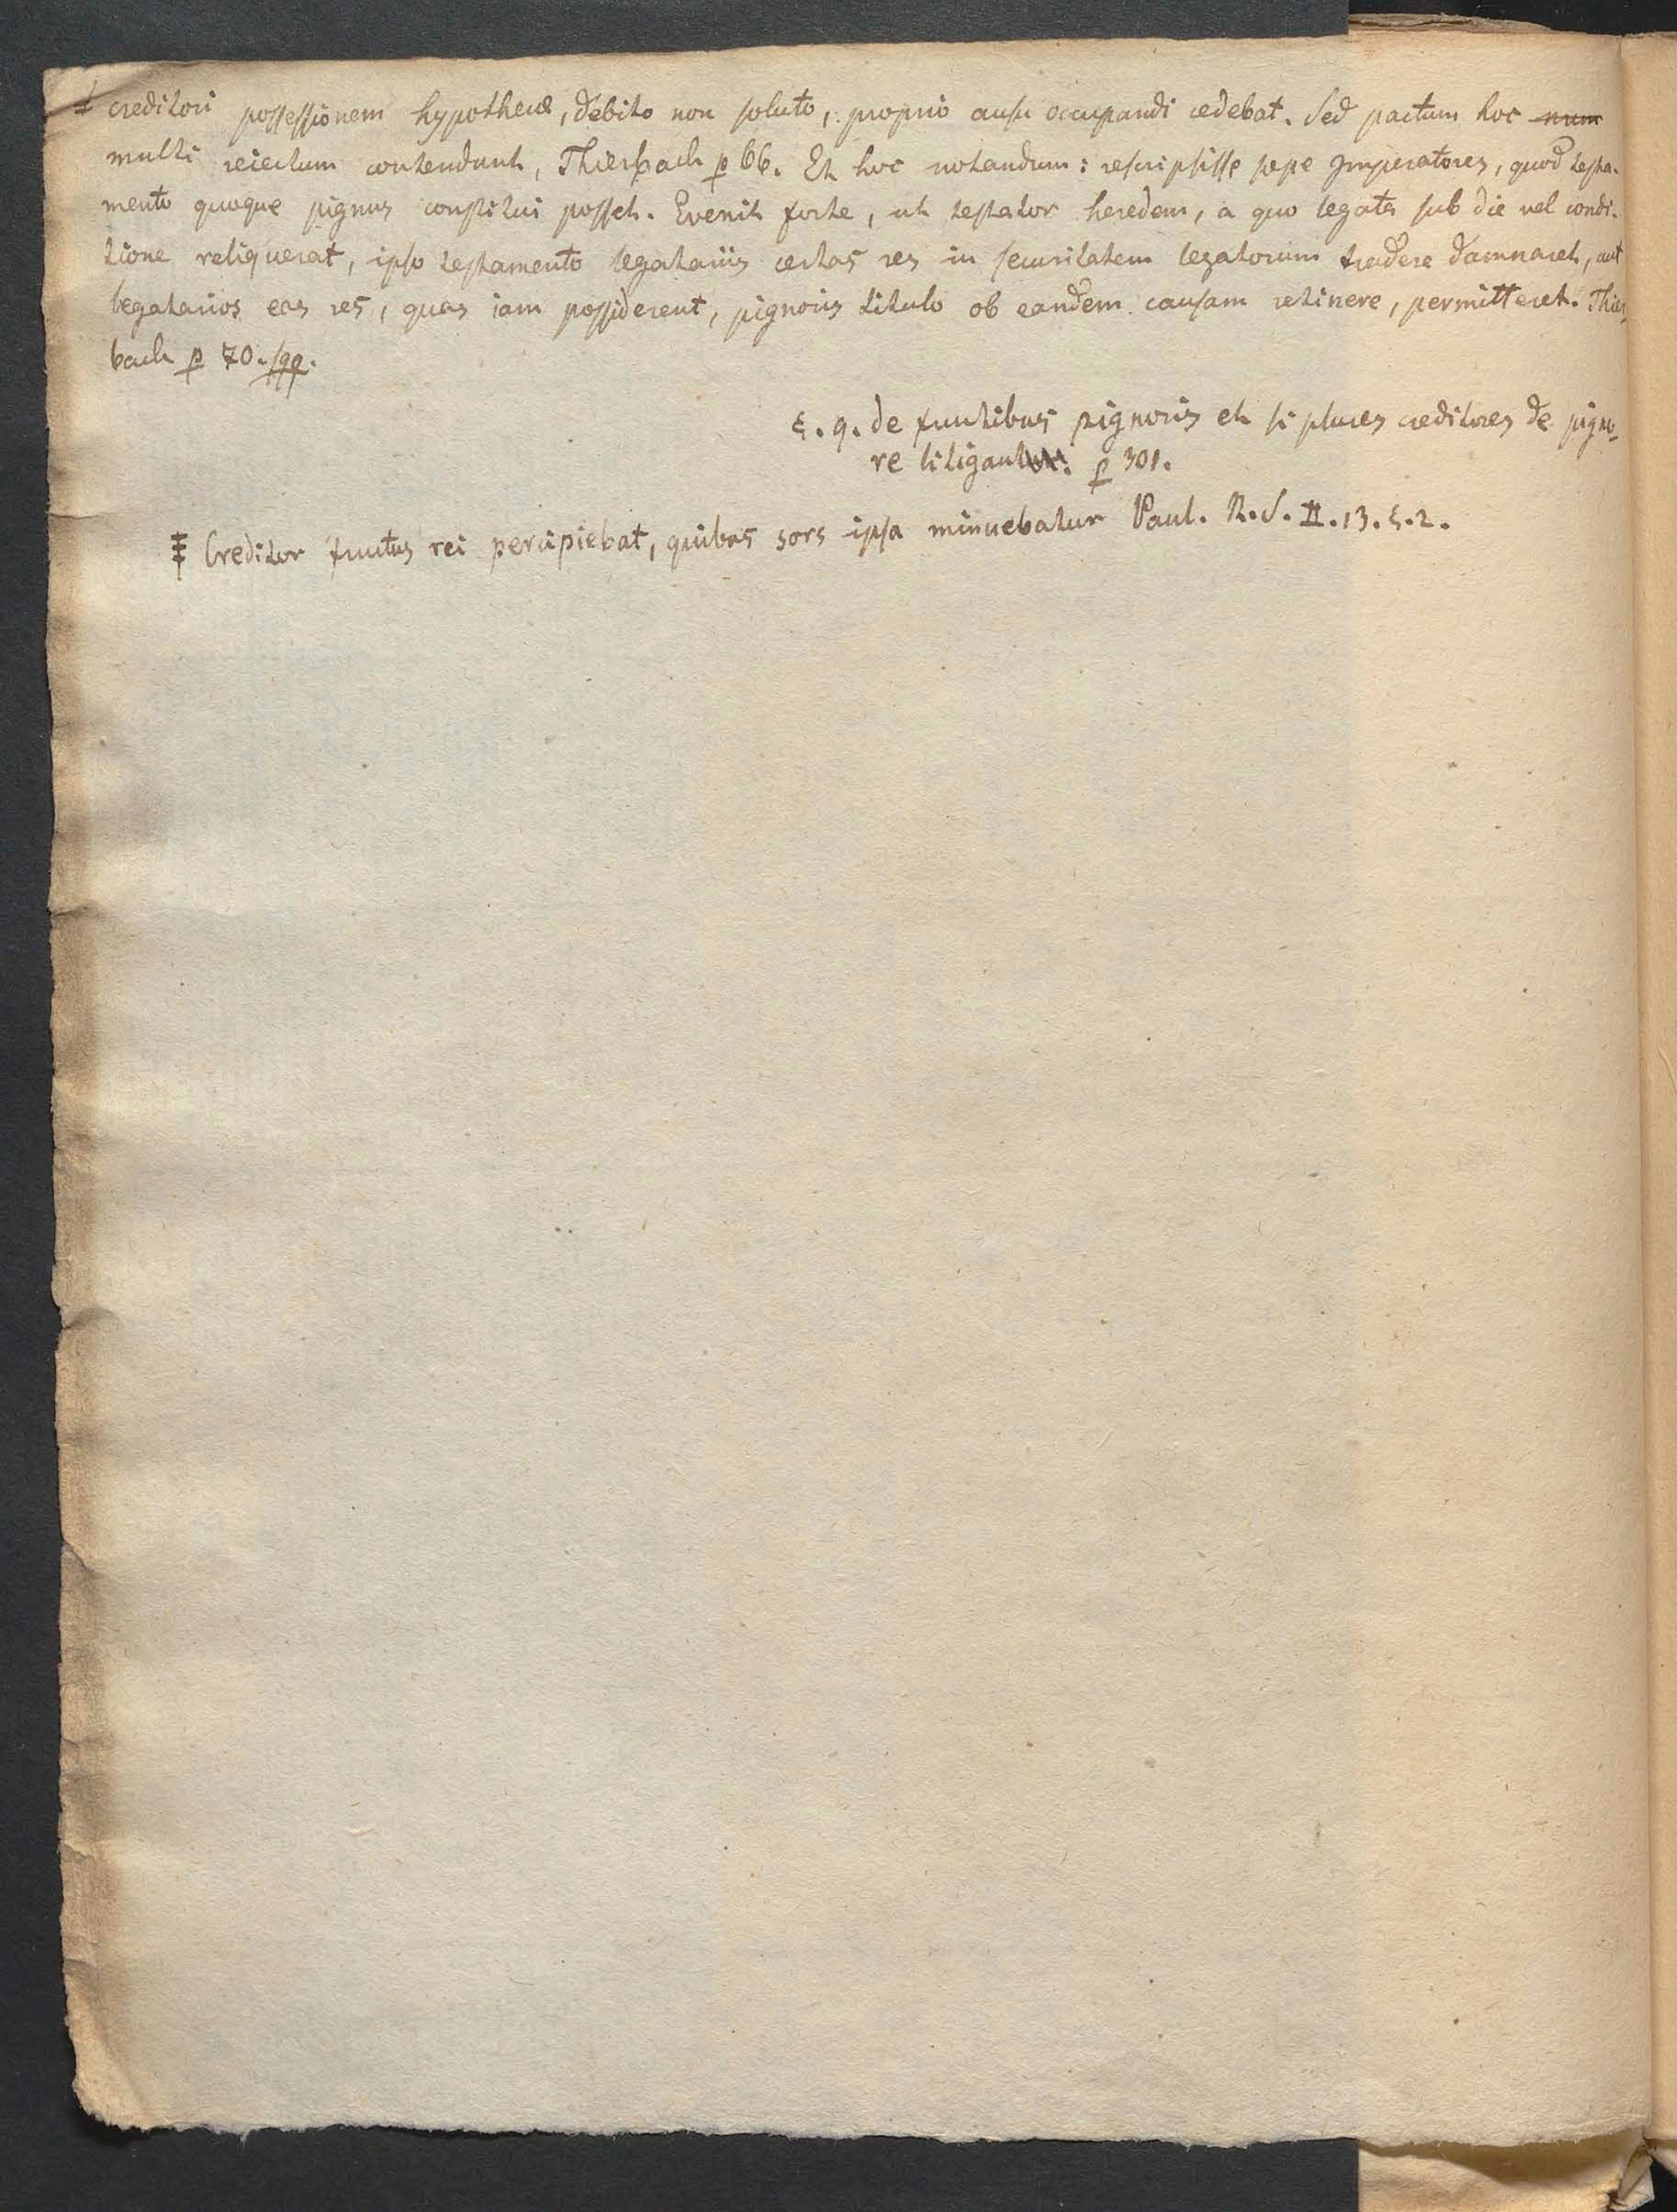 ‡ creditori possessionem hypothecæ, debito non soluto, proprio ausu occupandi cedebat. Sed pactum hoc num
multi reiectum contendunt, Thierbach p 66. Et hoc notandum: rescripsisse sepe Imperatores, quod testa-
mento quoque pignus constitui posset. Evenit forte, ut testator heredem, a quo legata sub die vel condi-
tione reliquerat, ipso testamento legatariis certas res in securitatem legatorum tradere damnaret, aut
legatarios eas res, quas iam possiderent, pignoris titulo ob eandem causam retinere, permitteret. Thier-
bach p 70. sqq.
c. q. de fructibus pignoris et si plures creditores de pigno-
re litigant. p 301.
‡ Creditor fructus rei percipiebat, quibus sors ipsa minuebatur Paul. R. S. II. 13. §. 2.